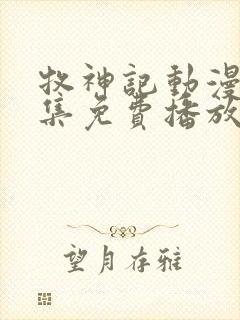 牧神記動漫
集免費播放
望月存雅